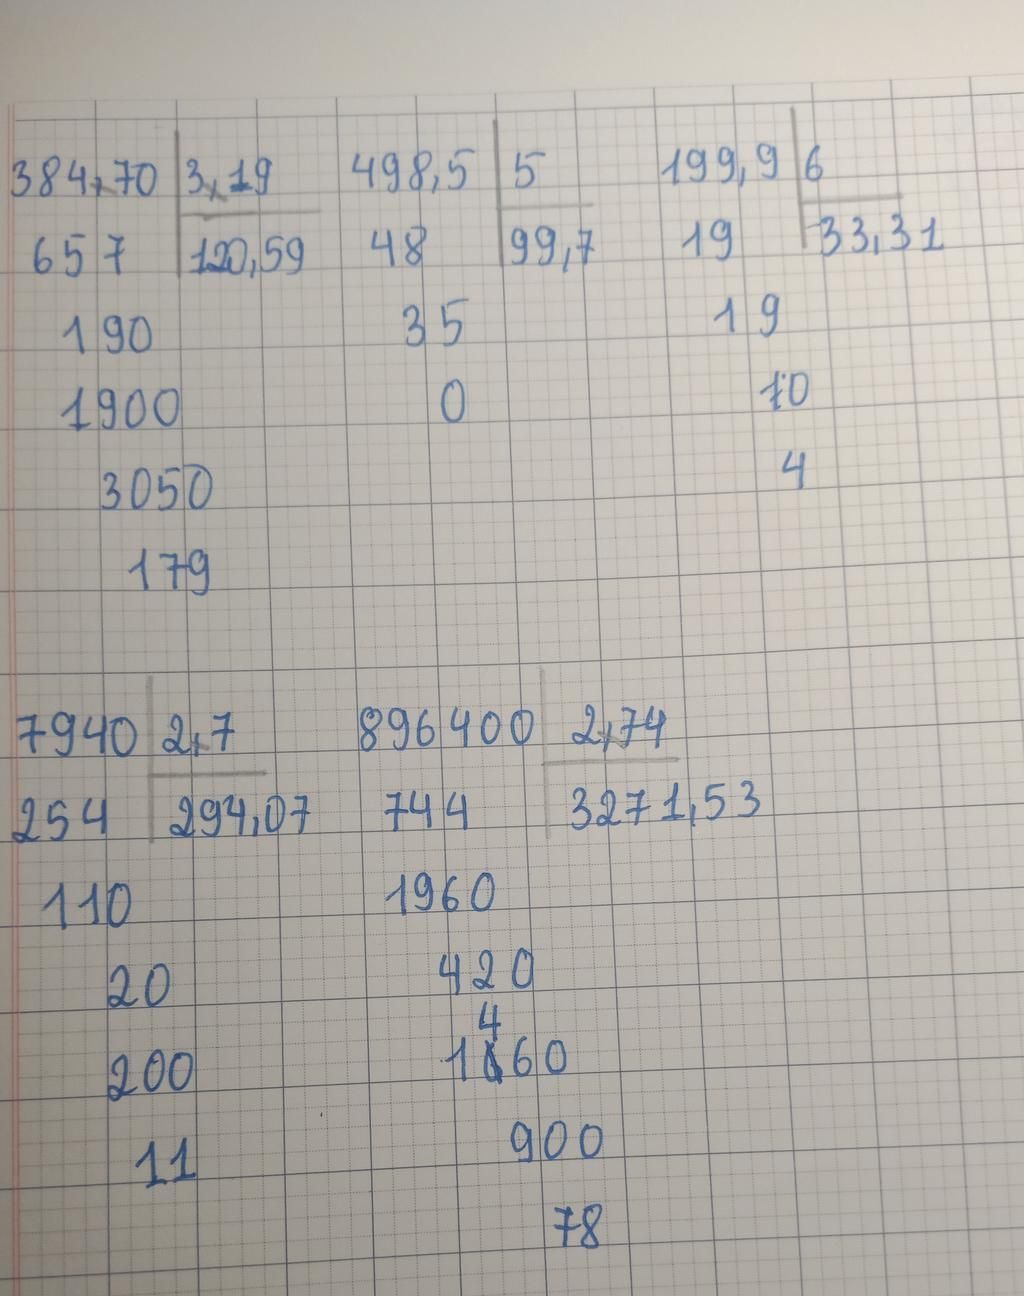 384,70 3,19 498,5 5 199,9 6
657 120,59 48 99,7 19 33,31
190 35 19
1900 0 10
3050 4
179
7940 2,7 896400 2,74
254 294,07 744 3271,53
110 1960
20 420
4
200 1660
11 900
78